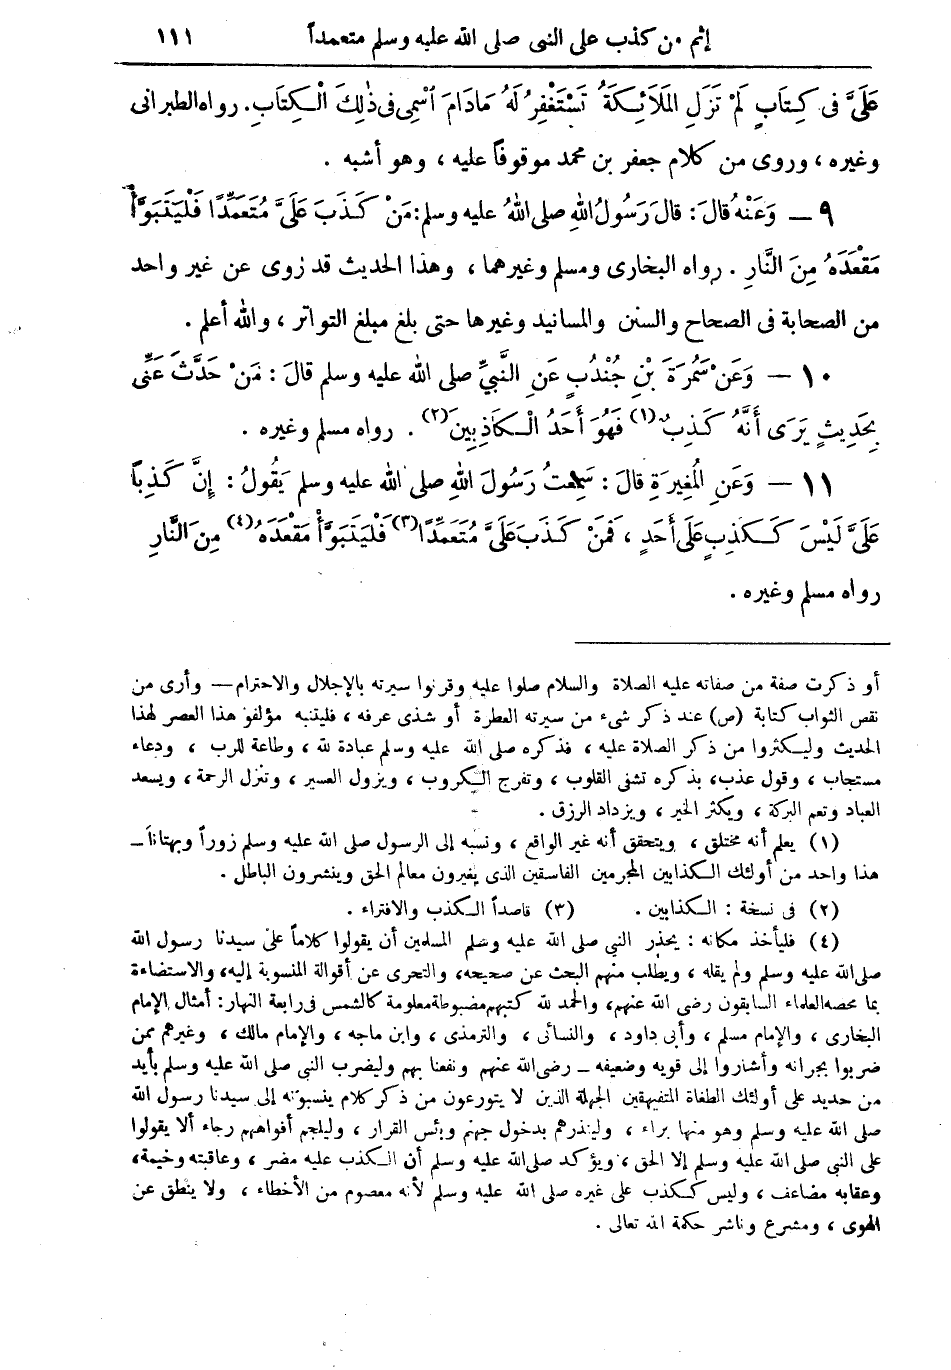 إثم من كذب على النبى صلى الله عليه وسلم متعمداً ١١١
عَلَىَّ فى كِتَابٍ لَمْ تَزَلِ المَلَائِكَةُ تَسْتَغْفِرُ لَهُ مَادَامَ اسْمِى فى ذٰلِكَ الْكِتَابِ. رواه الطبرانى
وغيره ، وروى من كلام جعفر بن محمد موقوفاً عليه ، وهو أشبه .
٩ — وَعَنْهُ قالَ : قالَ رَسُولُ اللهِ صلى اللهُ عليه وسلم: مَنْ كَذَبَ عَلَىَّ مُتَعَمِّدًا فَلْيَتَبَوَّأْ
مَقْعَدَهُ مِنَ النَّارِ . رواه البخارى ومسلم وغيرهما ، وهذا الحديث قد روى عن غير واحد
من الصحابة فى الصحاح والسنن والمسانيد وغيرها حتى بلغ مبلغ التواتر ، والله أعلم .
١٠ — وَعَنْ سَمُرَةَ بْنِ جُنْدُبٍ عَنِ النَّبِيِّ صلى الله عليه وسلم قالَ : مَنْ حَدَّثَ عَنِّى
بِحَدِيثٍ يَرَى أَنَّهُ كَذِبٌ(١) فَهُوَ أَحَدُ الْكَاذِبِينَ(٢) . رواه مسلم وغيره .
١١ — وَعَنِ المُغِيرَةِ قالَ : سَمِعْتُ رَسُولَ اللهِ صلى الله عليه وسلم يَقُولُ : إِنَّ كَذِبًا
عَلَىَّ لَيْسَ كَكَذِبٍ عَلَى أَحَدٍ ، فَمَنْ كَذَبَ عَلَىَّ مُتَعَمِّدًا(٣) فَلْيَتَبَوَّأْ مَقْعَدَهُ(٤) مِنَ النَّارِ
رواه مسلم وغيره .
أو ذكرت صفة من صفاته عليه الصلاة والسلام صلوا عليه وقرنوا سيرته بالإجلال والاحترام — وأرى من
نقص الثواب كتابة (ص) عند ذكر شىء من سيرته العطرة أو شذى عرفه ، فليتنبه مؤلفو هذا العصر لهذا
الحديث وليكثروا من ذكر الصلاة عليه ، فذكره صلى الله عليه وسلم عبادة لله ، وطاعة للرب ، ودعاء
مستجاب ، وقول عذب، بذكره تشفى القلوب ، وتفرج الكروب ، ويزول العسير ، وتنزل الرحمة ، ويسعد
العباد وتعم البركة ، ويكثر الخير ، ويزداد الرزق .
(١) يعلم أنه مختلق ، ويتحقق أنه غير الواقع ، ونسبه إلى الرسول صلى الله عليه وسلم زوراً وبهتاناً —
هذا واحد من أولئك الكذابين المجرمين الفاسقين الذى يغيرون معالم الحق وينشرون الباطل .
(٢) فى نسخة : الكذابين . (٣) قاصداً الكذب والافتراء .
(٤) فليأخذ مكانه : يحذر النبى صلى الله عليه وسلم المسلمين أن يقولوا كلاماً على سيدنا رسول الله
صلى الله عليه وسلم ولم يقله ، ويطلب منهم البحث عن صحيحه، والتحرى عن أقوالة المنسوبة إليه، والاستضاءة
بما محصه العلماء السابقون رضى الله عنهم، والحمد لله كتبهم مضبوطة معلومة كالشمس فى رابعة النهار: أمثال الإمام
البخارى ، والإمام مسلم ، وأبى داود ، والنسائى ، والترمذى ، وابن ماجه ، والإمام مالك ، وغيرهم ممن
ضربوا بجرانه وأشاروا إلى قويه وضعيفه — رضى الله عنهم ونفعنا بهم وليضرب النبى صلى الله عليه وسلم بأيد
من حديد على أولئك الطغاة المتفيهقين الجهلة الذين لا يتورعون من ذكر كلام ينسبونه إلى سيدنا رسول الله
صلى الله عليه وسلم وهو منها براء ، ولينذرهم بدخول جهنم وبئس القرار ، وليلجم أفواههم رجاء ألا يقولوا
على النبى صلى الله عليه وسلم إلا الحق ، ويؤكد صلى الله عليه وسلم أن الكذب عليه مضر ، وعاقبته وخيمة،
وعقابه مضاعف ، وليس ككذب على غيره صلى الله عليه وسلم لأنه معصوم من الأخطاء ، ولا ينطق عن
الهوى ، ومشرع وناشر حكمة الله تعالى .